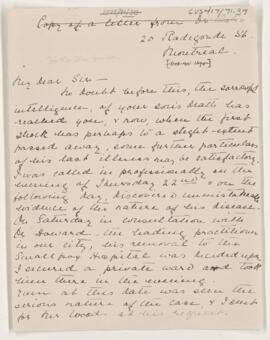 CUS417/71.27
Copy of a letter from Dr
20 Radegonde St.
Montreal.
My dear Sir—
No doubt before this, the sorrowful
intelligence, of your son's death has
reached you, & now, when the first
shock has perhaps to a slight extent
passed away, some further particulars
of his last illness may be satisfactory.
I was called in professionally on the
evening of Thursday 22nd & on the
following day, discovered unmistakable
evidence of the nature of his disease.
On Saturday in consultation with
Dr Howard, the leading practitioner
in our city, his removal to the
Smallpox Hospital was decided upon
I secured a private ward and took
him there in the evening.
Even at this date was seen the
serious nature of the case, & I sent
for Mr Wood at his request.